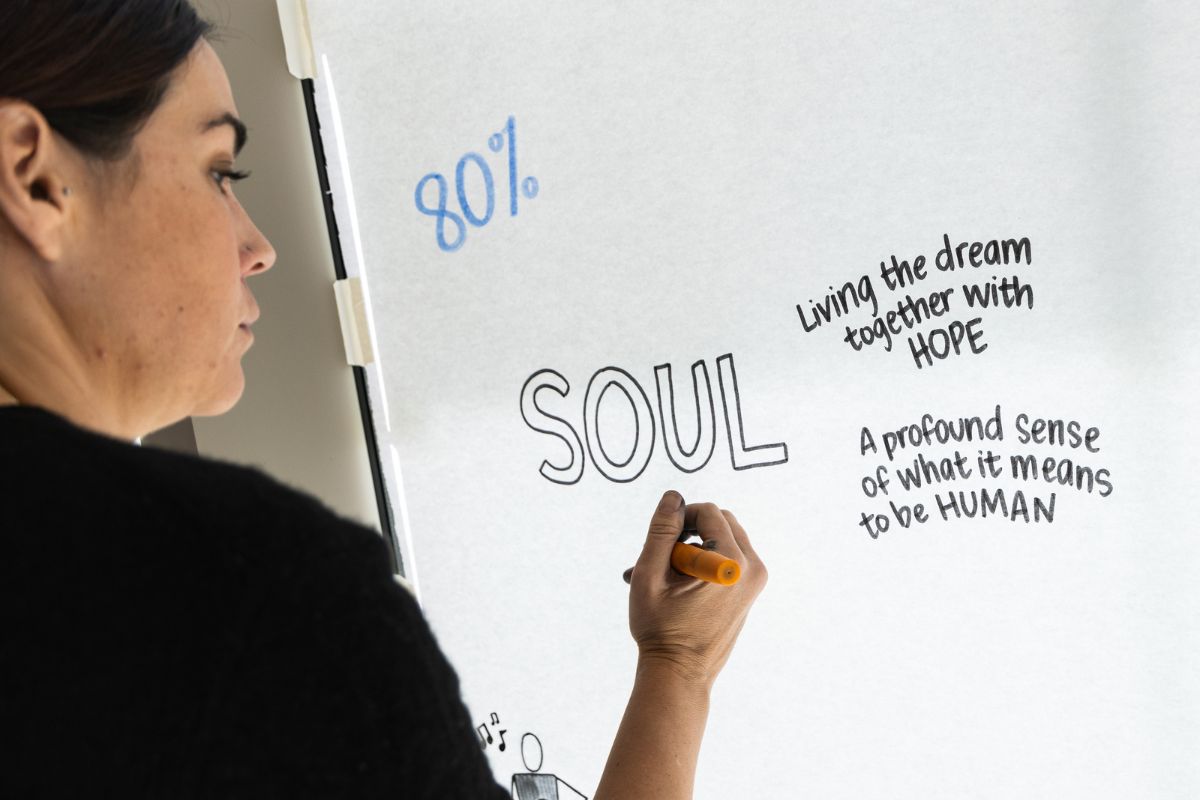 80%
Living the dream
together with
HOPE
SOUL
A profound sense
of what it means
to be HUMAN